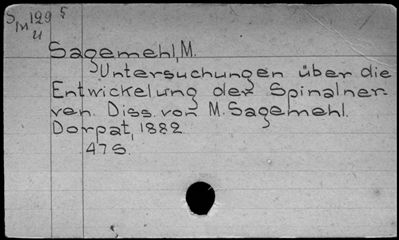 S 129 §
In
u
Sagemehl, M.
Untersuchungen über die
Entwickelung der Spinalner-
ven. Diss. von M. Sagemehl.
Dorpat, 1882
47 S.